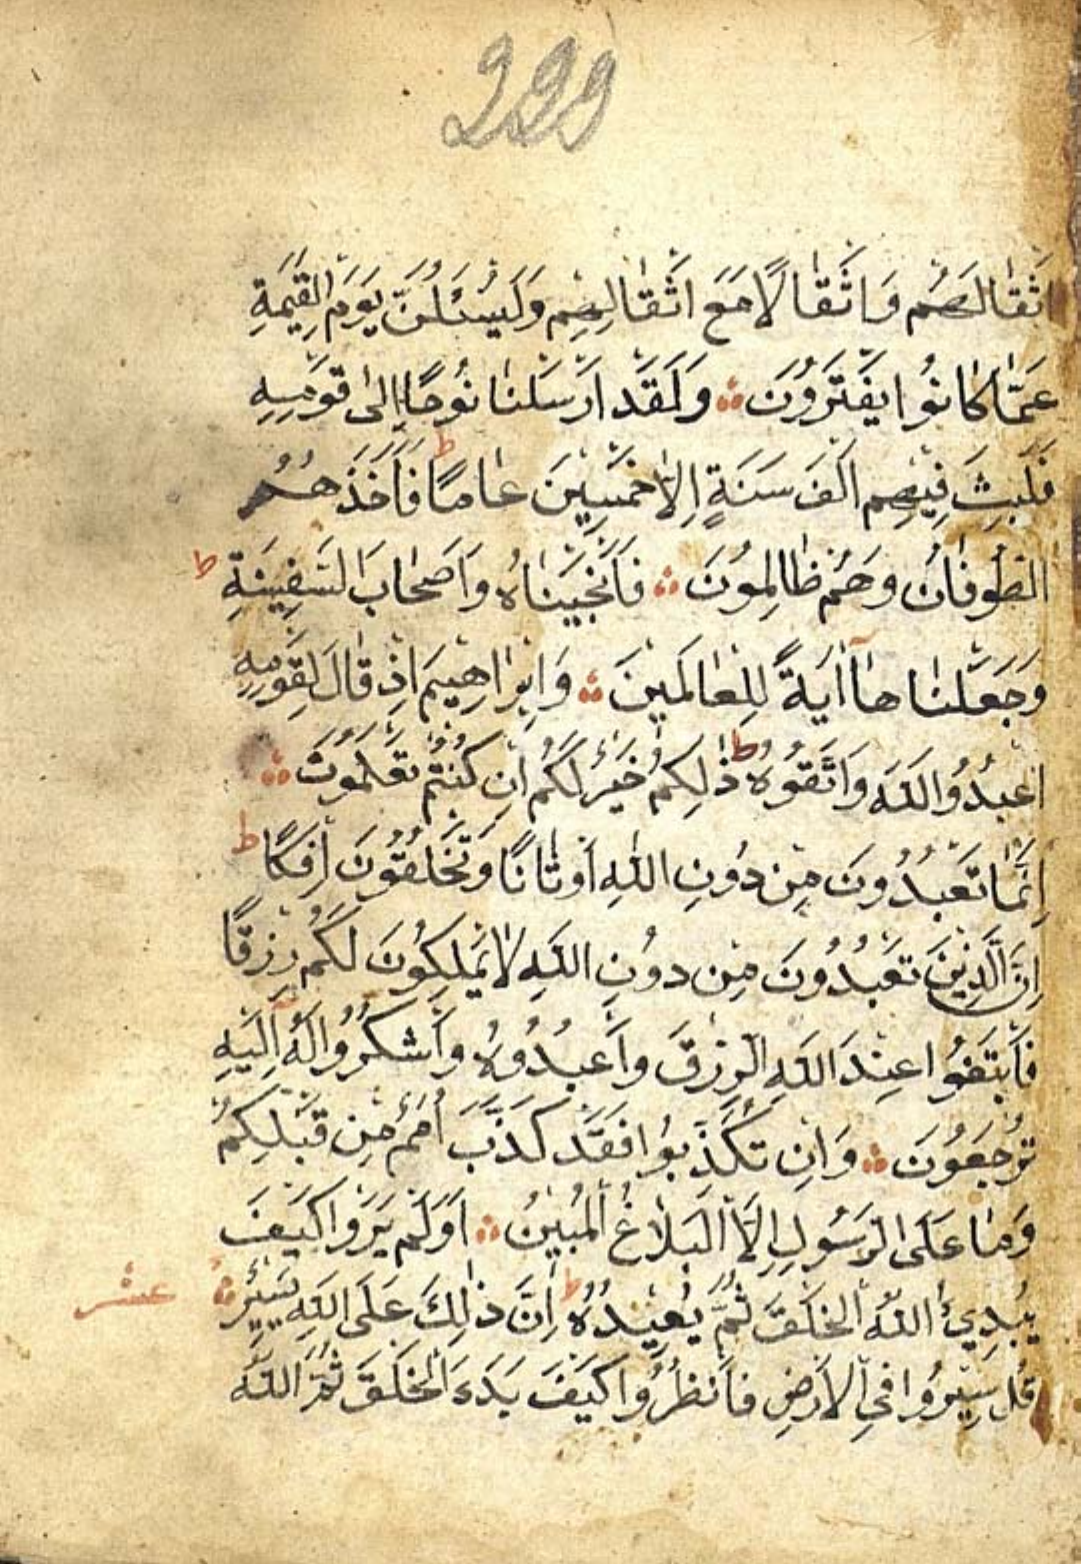 299
اَثْقَالَهُمْ وَاَثْقَالًا مَعَ اَثْقَالِهِمْ وَلَيُسْئَلُنَّ يَوْمَ الْقِيٰمَةِ
عَمَّا كَانُوا يَفْتَرُونَ ۞ وَلَقَدْ اَرْسَلْنَا نُوحًا اِلٰى قَوْمِهِ
فَلَبِثَ فِيهِمْ اَلْفَ سَنَةٍ اِلَّا خَمْسِينَ عَامًا ط فَاَخَذَهُمُ
الطُّوفَانُ وَهُمْ ظَالِمُونَ ۞ فَاَنْجَيْنَاهُ وَاَصْحَابَ السَّفِينَةِ ط
وَجَعَلْنَاهَا اٰيَةً لِلْعَالَمِينَ ۞ وَاِبْرَاهِيمَ اِذْ قَالَ لِقَوْمِهِ
اعْبُدُوا اللّٰهَ وَاتَّقُوهُ ط ذٰلِكُمْ خَيْرٌ لَكُمْ اِنْ كُنْتُمْ تَعْلَمُونَ ۞
اِنَّمَا تَعْبُدُونَ مِنْ دُونِ اللّٰهِ اَوْثَانًا وَتَخْلُقُونَ اِفْكًا ط
اِنَّ الَّذِينَ تَعْبُدُونَ مِنْ دُونِ اللّٰهِ لَا يَمْلِكُونَ لَكُمْ رِزْقًا
فَابْتَغُوا عِنْدَ اللّٰهِ الرِّزْقَ وَاعْبُدُوهُ وَاشْكُرُوا لَهُ اِلَيْهِ
تُرْجَعُونَ ۞ وَاِنْ تُكَذِّبُوا فَقَدْ كَذَّبَ اُمَمٌ مِنْ قَبْلِكُمْ
وَمَا عَلَى الرَّسُولِ اِلَّا الْبَلَاغُ الْمُبِينُ ۞ اَوَلَمْ يَرَوْا كَيْفَ
يُبْدِئُ اللّٰهُ الْخَلْقَ ثُمَّ يُعِيدُهُ ط اِنَّ ذٰلِكَ عَلَى اللّٰهِ يَسِيرٌ ۞ عشر
قُلْ سِيرُوا فِي الْاَرْضِ فَانْظُرُوا كَيْفَ بَدَءَ الْخَلْقَ ثُمَّ اللّٰهُ